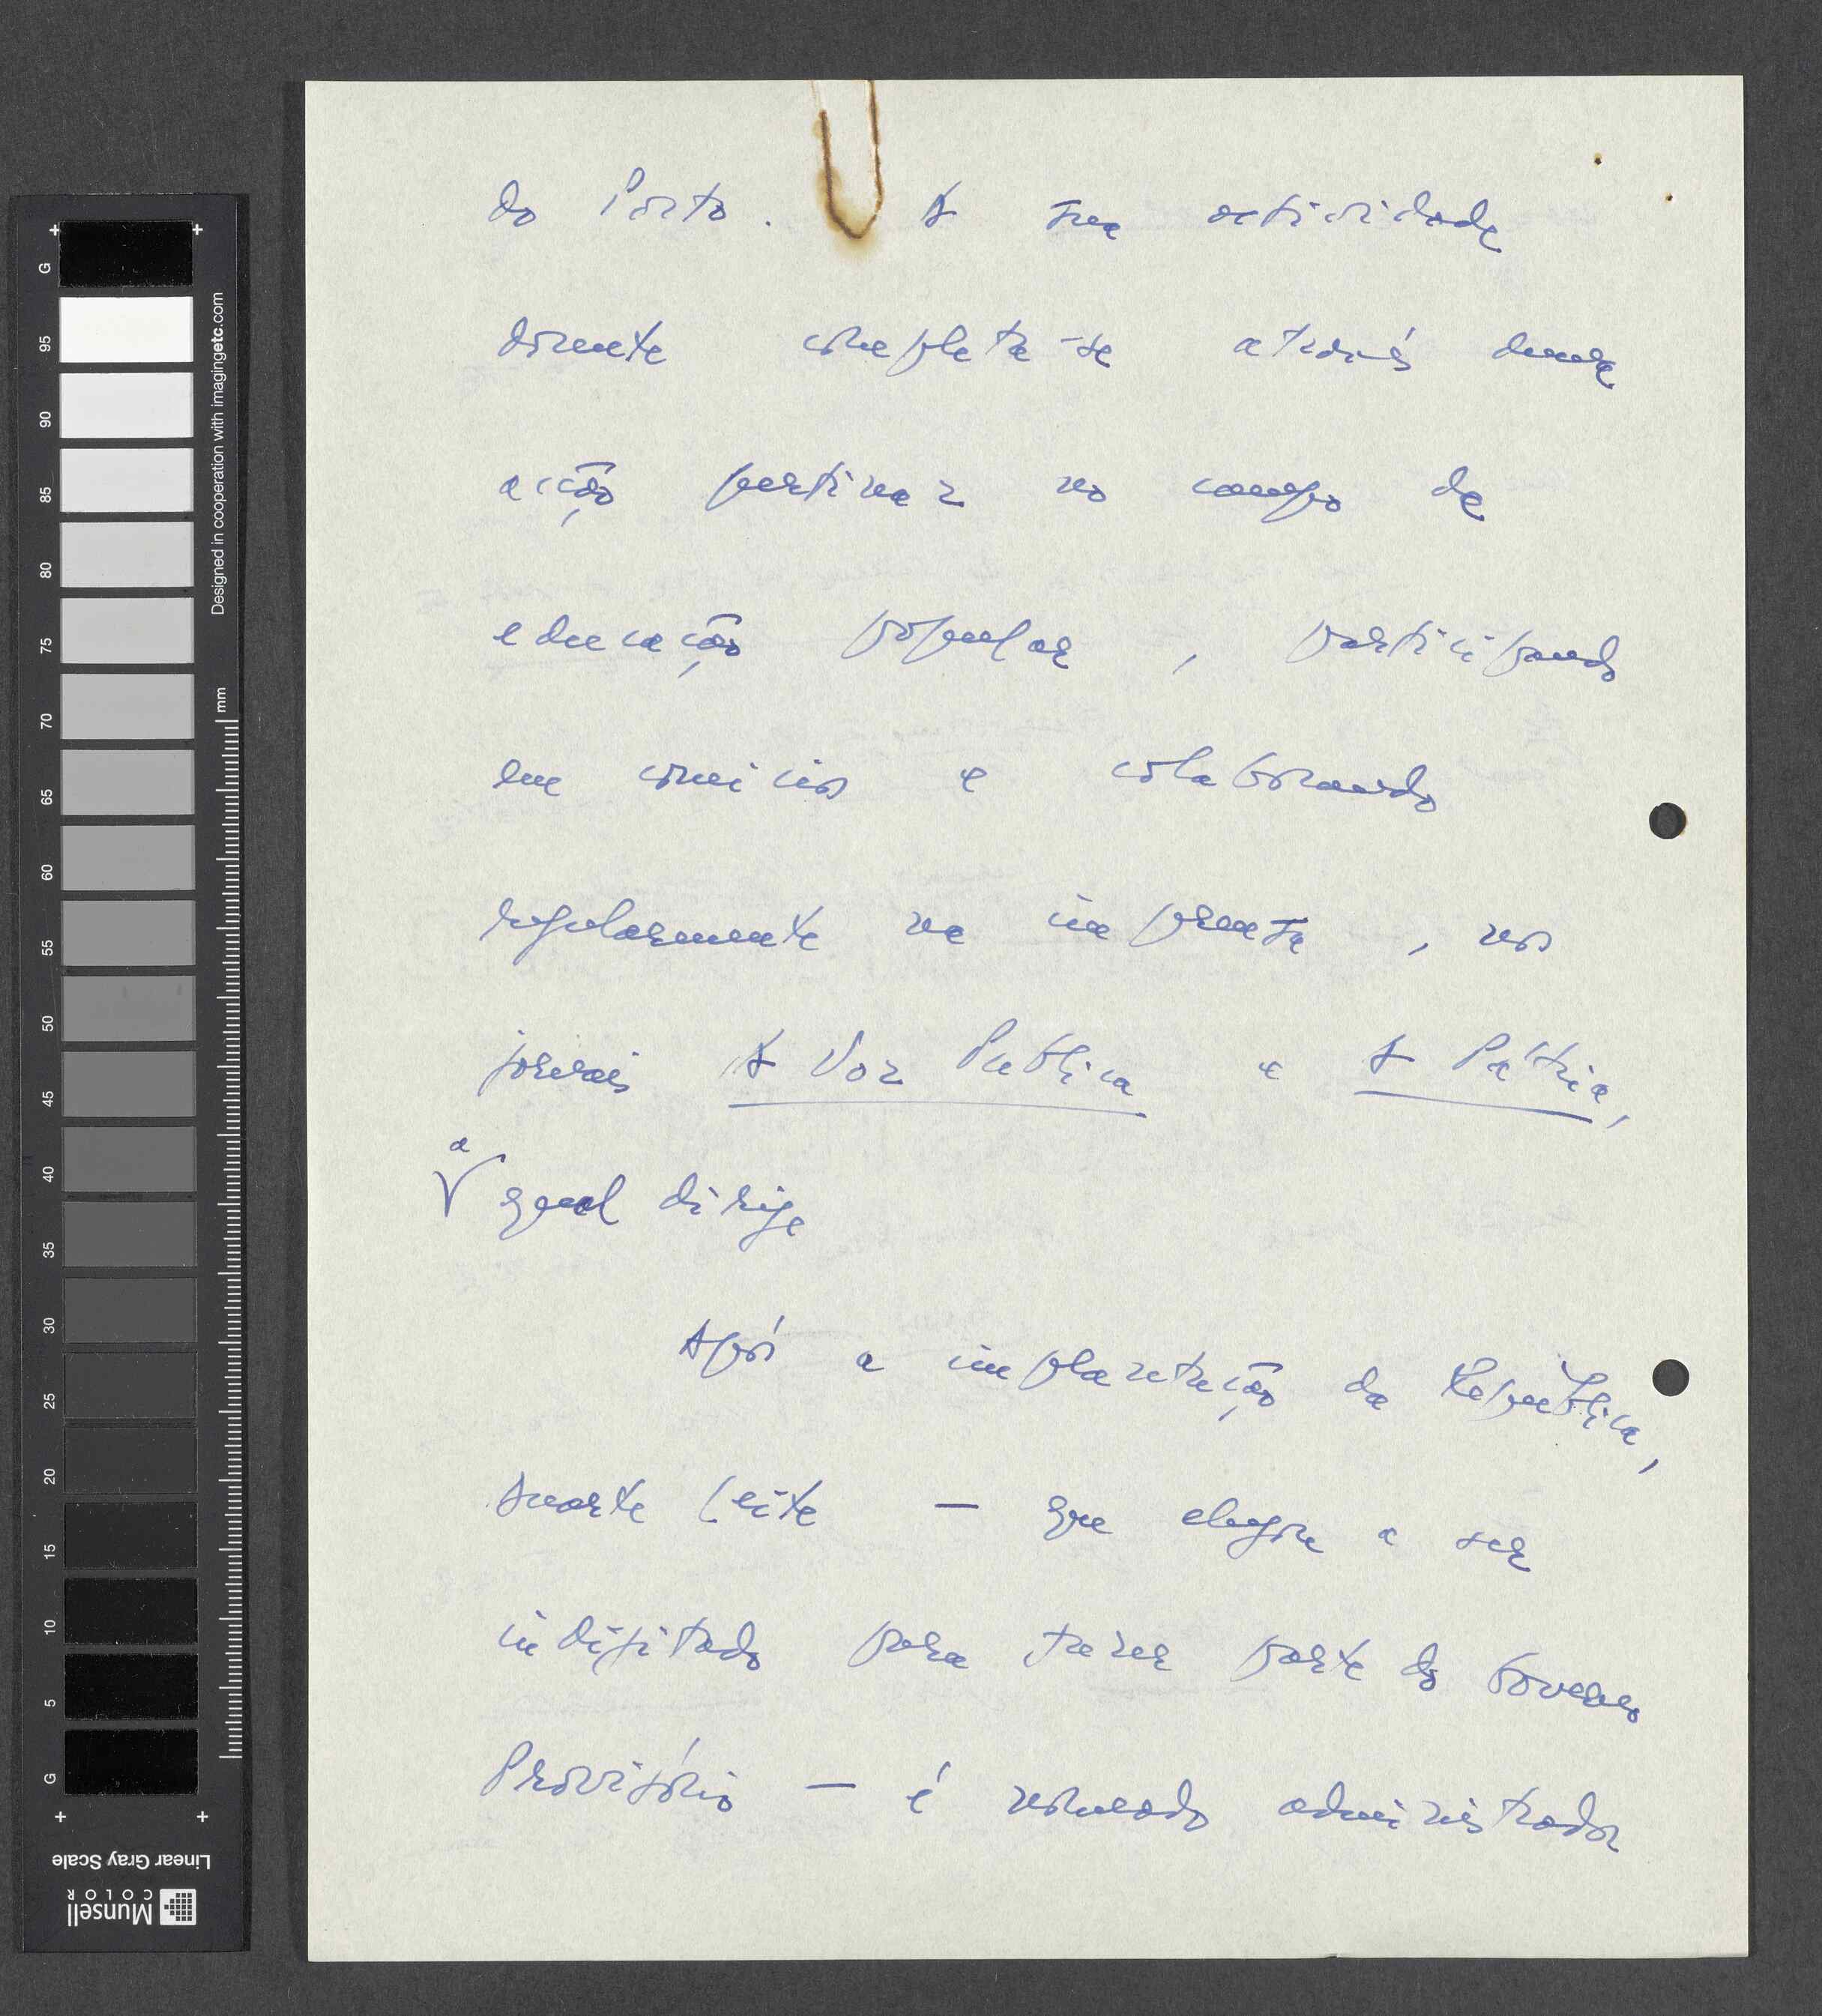 do Porto. A sua actividade
docente completa-se através duma
acção pertinaz no campo da
educação popular, participando
em comícios e colaborando
regularmente na imprensa, nos
jornais A Voz Publica e A Pátria,
a
qual dirige
Após a implantação da República,
Duarte Leite — que chegou a ser
indigitado para fazer parte do Governo
Provisório — é nomeado administrador
G
95
90
85
80
75
70
65
60
55
50
45
40
35
30
25
20
15
10
5
G
Designed in cooperation with imagingetc.com
mm
Linear Gray Scale
Munsell
COLOR